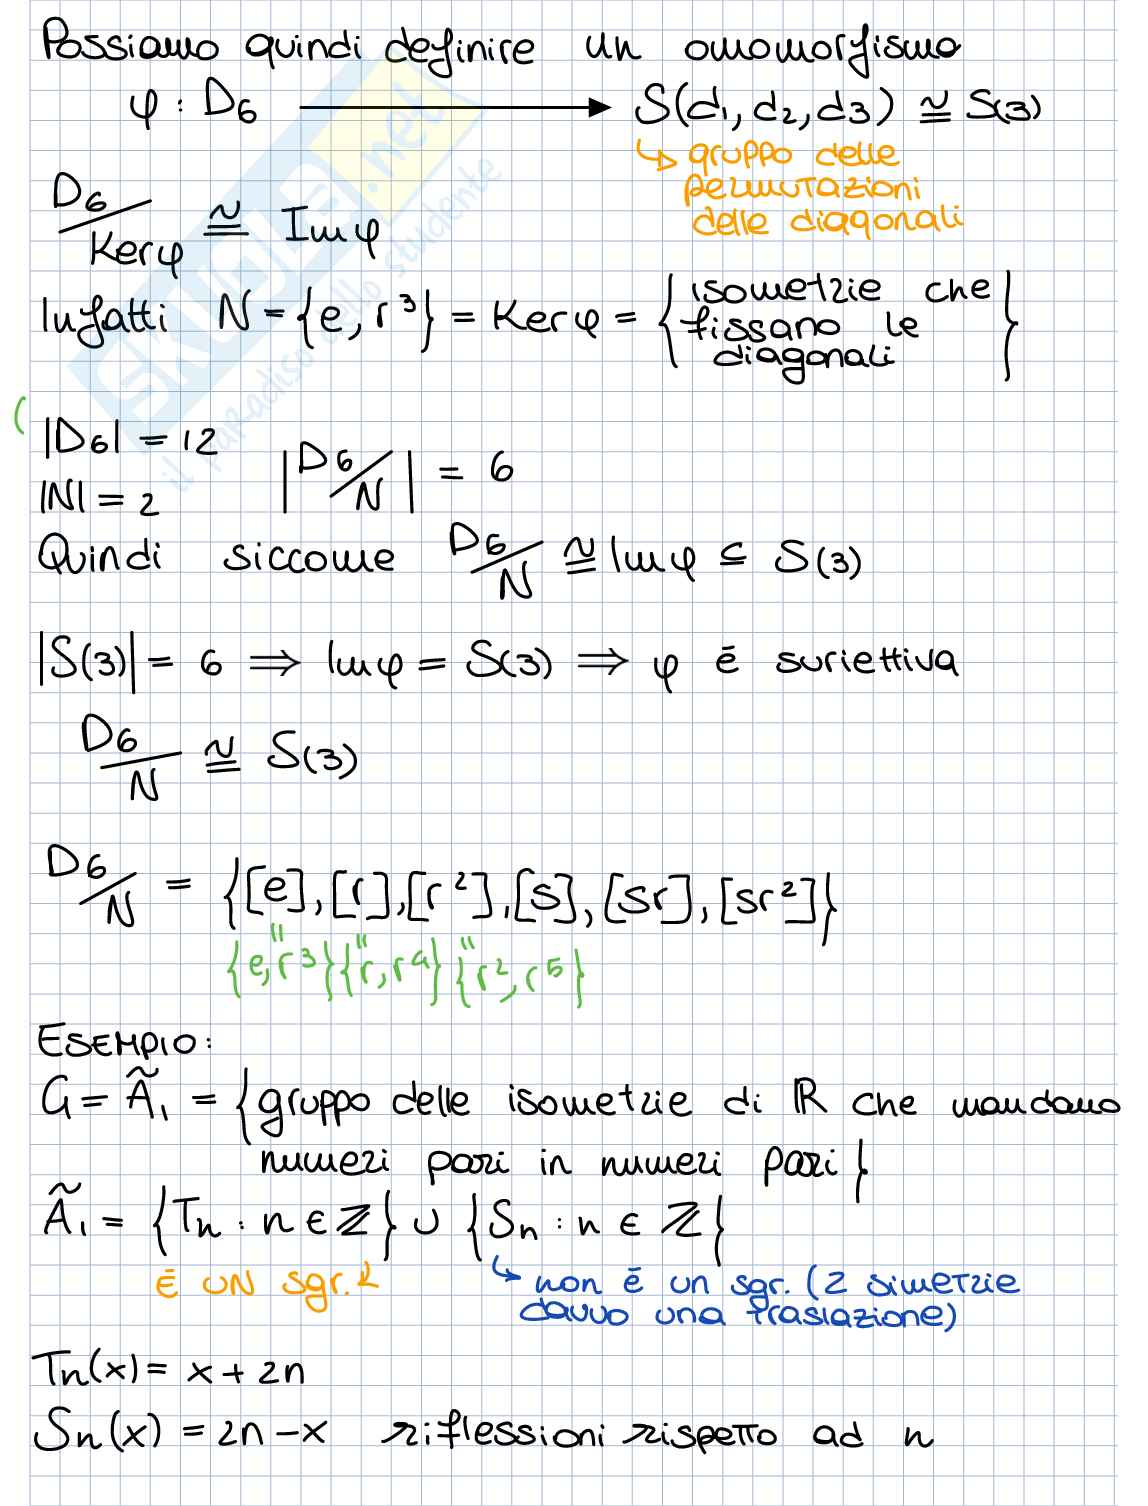 Possiamo quindi definire un omomorfismo
φ : D6 ⟶ S(d1, d2, d3) ≅ S(3)
↳ gruppo delle
permutazioni
delle diagonali
D6/Kerφ ≅ Imφ
Infatti N = {e, r³} = Kerφ = {isometrie che
fissano le
diagonali}
(
|D6| = 12
|N| = 2
|D6/N| = 6
Quindi siccome D6/N ≅ Imφ ⊆ S(3)
|S(3)| = 6 ⇒ Imφ = S(3) ⇒ φ è suriettiva
D6/N ≅ S(3)
D6/N = {[e], [r], [r²], [s], [sr], [sr²]}
" " "
{e, r³} {r, r⁴} {r², r⁵}
ESEMPIO:
G = Ã1 = {gruppo delle isometrie di ℝ che mandano
numeri pari in numeri pari}
Ã1 = {Tn : n ∈ ℤ} ∪ {Sn : n ∈ ℤ}
È UN sgr. ↲
↳ non è un sgr. (2 simetrie
danno una traslazione)
Tn(x) = x + 2n
Sn(x) = 2n - x riflessioni rispetto ad n
SKUOLA.net
il paradiso dello studente